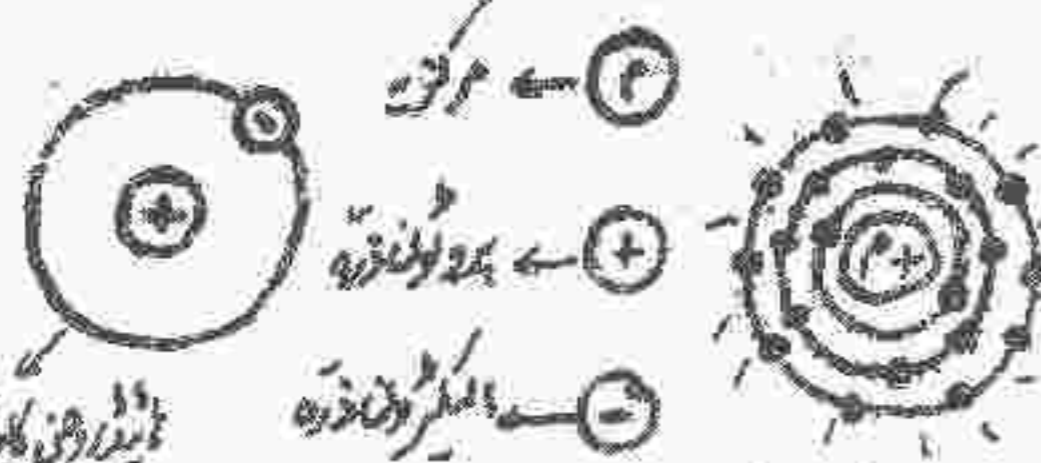 م ← مرکزہ
+ ← پروٹان ذرّہ
− ← الیکٹران ذرّہ
ہائیڈروجن کا